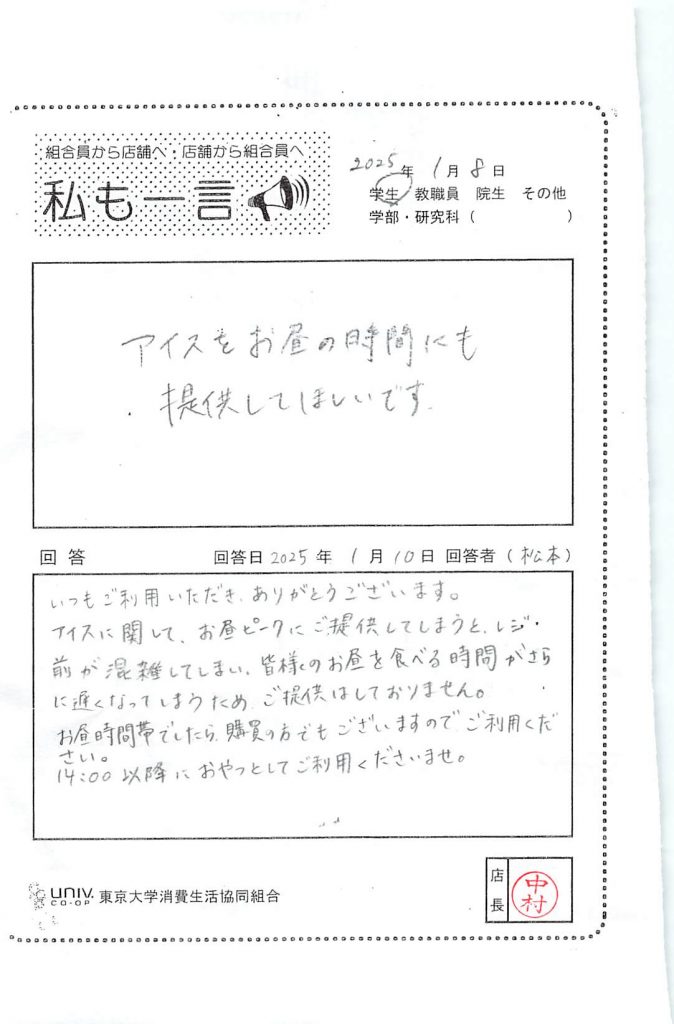 組合員から店舗へ・店舗から組合員へ
私も一言
2025年 1月 8日
学生 教職員 院生 その他
学部・研究科（ ）
アイスをお昼の時間にも
提供してほしいです。
回答 回答日 2025年 1月 10日 回答者（松本）
いつもご利用いただき、ありがとうございます。
アイスに関して、お昼ピークにご提供してしまうと、レジ
前が混雑してしまい、皆様のお昼を食べる時間がさら
に遅くなってしまうため、ご提供はしておりません。
お昼時間帯でしたら、購買の方でもございますのでご利用くだ
さい。
14:00以降におやつとしてご利用くださいませ。
店長
中村
UNIV. CO-OP 東京大学消費生活協同組合